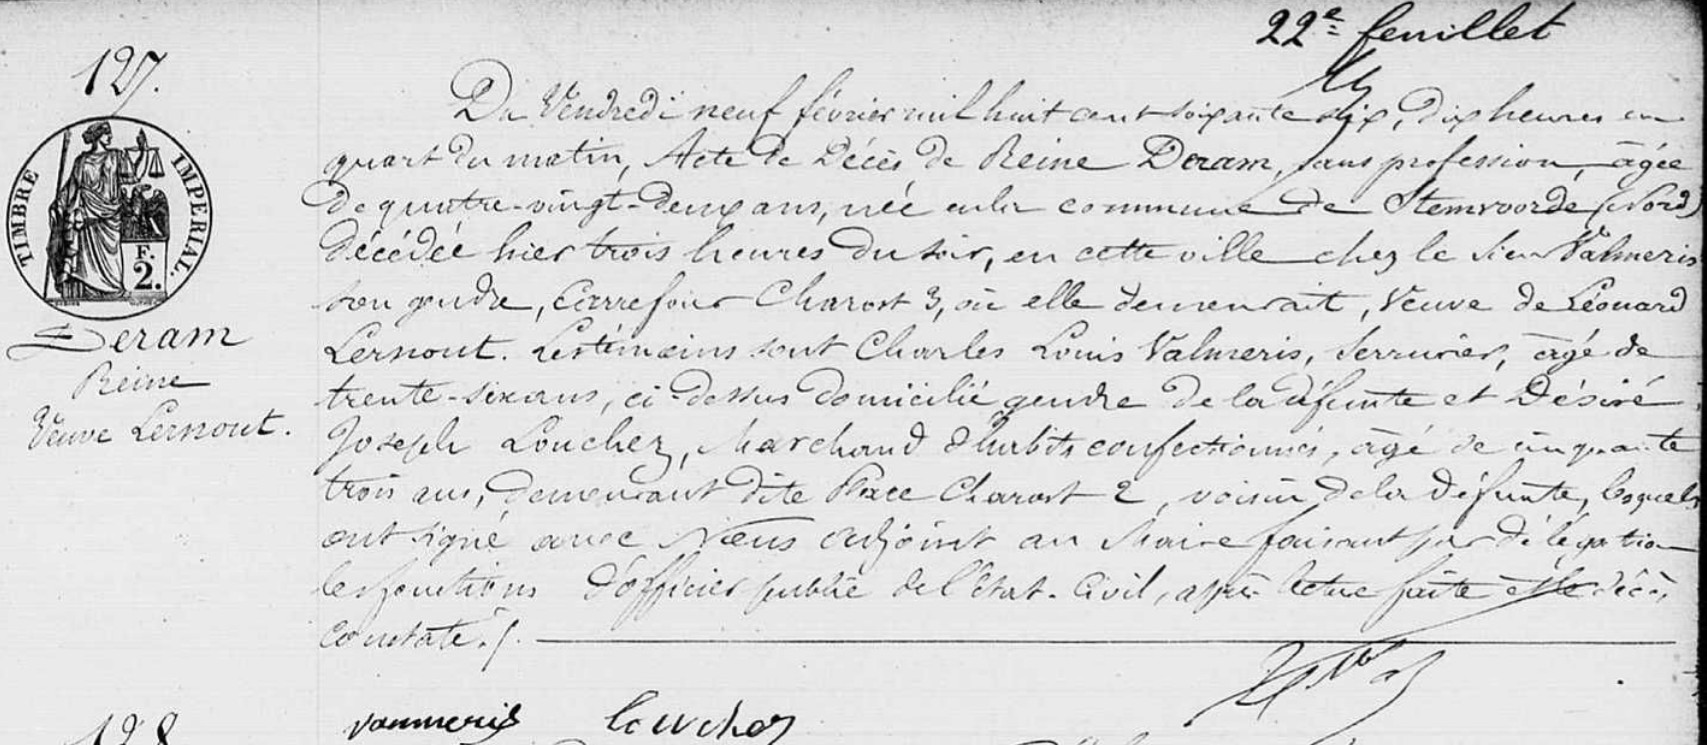 22e feuillet
127.
TIMBRE IMPERIAL.
F.
2.
Deram
Reine
Veuve Lernout.
Du Vendredi neuf février mil huit cent soixante dix, dix heures un
quart du matin, Acte de Décès de Reine Deram, sans profession, âgée
de quatre-vingt-deux ans, née en la commune de Stemvoorde (Nord)
décédée hier trois heures du soir, en cette ville chez le sieur Valmeris
son gendre, Carrefour Charost 3, où elle demeurait, Veuve de Léonard
Lernout. Les témoins sont Charles Louis Valmeris, Serrurier, âgé de
trente-six ans, ci-dessus domicilié gendre de la défunte et Désiré
Joseph Louchez, Marchand d'habits confectionnés, âgé de cinquante
trois ans, demeurant dite Place Charost 2, voisin de la défunte, lesquels
ont signé avec Nous adjoint au Maire faisant par délégation
les fonctions d'officier public de l'état-Civil, après lecture faite et le décès
constaté.
vanmeris louchez
128